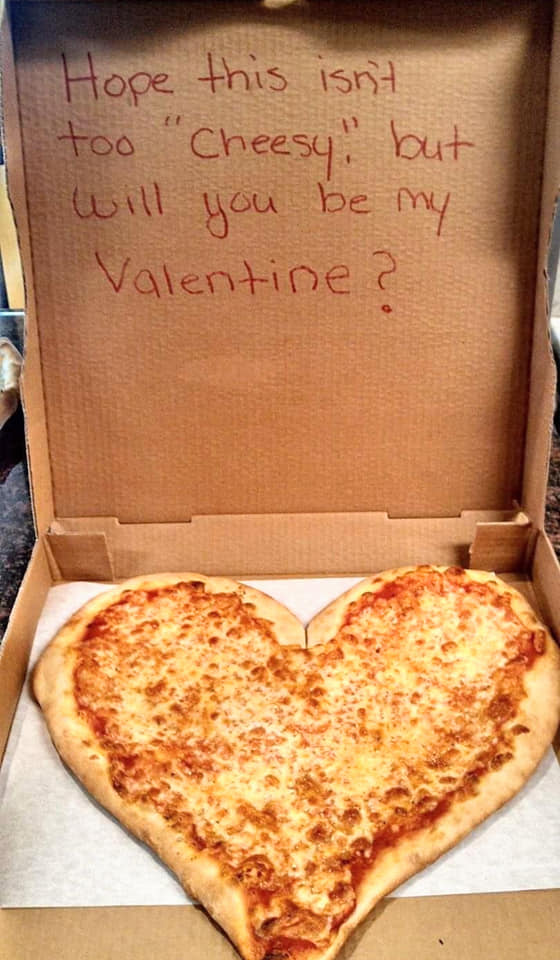 Hope this isn't
too "Cheesy," but
will you be my
Valentine?